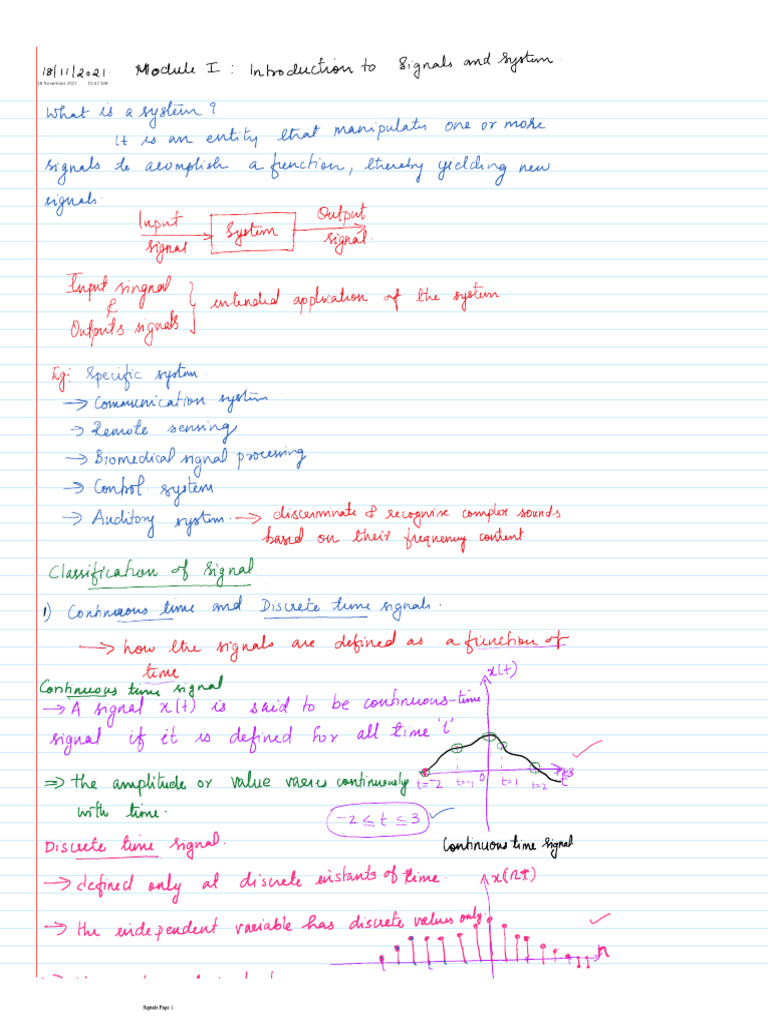 18/11/2021 Module I : Introduction to Signals and System
18 November 2021 10:47 AM
What is a system?
It is an entity that manipulates one or more
signals to acomplish a function, thereby yielding new
signals.
Input signal
System
Output signal.
Input singnal
&
Outputs signals
intended application of the system
Eg: Specific system.
→ Communication system.
→ Remote sensing
→ Biomedical signal processing
→ Control system
→ Auditory system → discriminate & recognise complex sounds
based on their frequency content
Classification of Signal
1) Continuous time and Discrete time signals.
→ how the signals are defined as a function of
time
Continuous time signal
→ A signal x(t) is said to be continuous-time
signal if it is defined for all time 't'
⇒ the amplitude or value varies continuously
with time.
-2 ≤ t ≤ 3
x(t)
t=-2 t=-1 0 t=1 t=2 t
Continuous time signal
Discrete time signal.
→ defined only at discrete instants of time.
→ the independent variable has discrete values only.
n
Signals Page 1